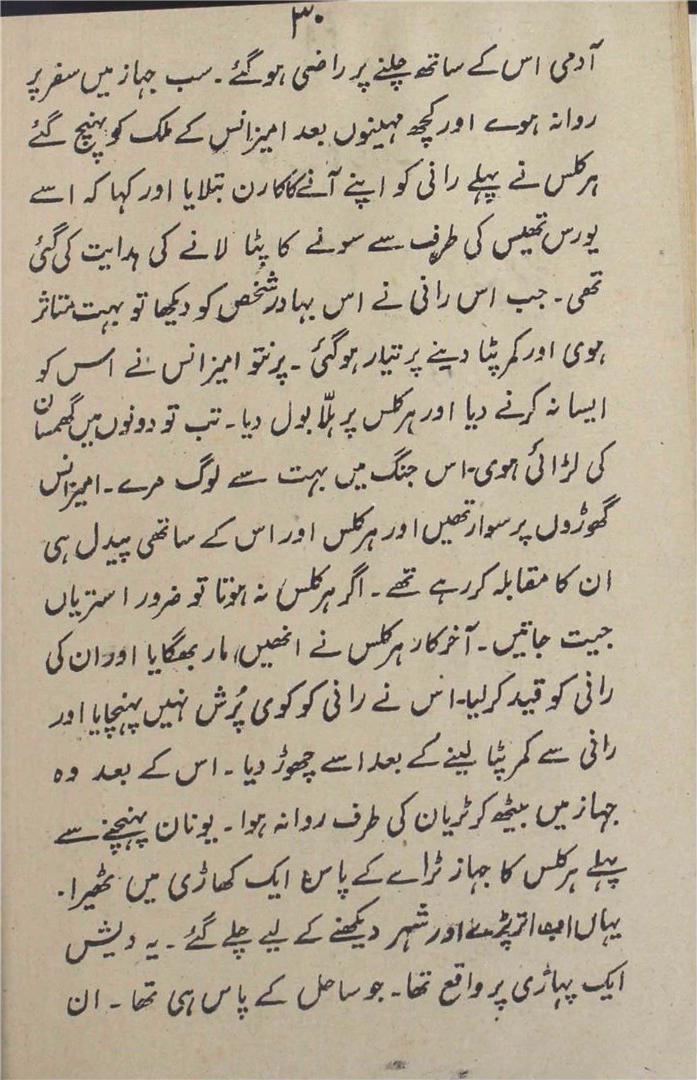 ۳۰
آدمی اس کے ساتھ چلنے پر راضی ہو گئے۔ سب جہاز میں سفر پر
روانہ ہوے اور کچھ مہینوں بعد امیزانس کے ملک کو پہنچ گئے
ہرکلس نے پہلے رانی کو اپنے آنے کا کارن بتلایا اور کہا کہ اسے
یورس تھیس کی طرف سے سونے کا پٹا لانے کی ہدایت کی گئی
تھی۔ جب اس رانی نے اس بہادر شخص کو دیکھا تو بہت متاثر
ہوی اور کمر پٹا دینے پر تیار ہو گئی۔ پرنتو امیزانس نے اس کو
ایسا نہ کرنے دیا اور ہرکلس پر ہلّا بول دیا۔ تب تو دونوں میں گھمسان
کی لڑائی ہوی۔ اس جنگ میں بہت سے لوگ مرے۔ امیزانس
گھوڑوں پر سوار تھیں اور ہرکلس اور اس کے ساتھی پیدل ہی
ان کا مقابلہ کر رہے تھے۔ اگر ہرکلس نہ ہوتا تو ضرور استریاں
جیت جاتیں۔ آخر کار ہرکلس نے انھیں مار بھگایا اور ان کی
رانی کو قید کر لیا۔ اس نے رانی کو کوی پُرش نہیں پہنچایا اور
رانی سے کمر پٹا لینے کے بعد اسے چھوڑ دیا۔ اس کے بعد وہ
جہاز میں بیٹھ کر ٹریان کی طرف روانہ ہوا۔ یونان پہنچنے سے
پہلے ہرکلس کا جہاز ٹرائے کے پاس ایک کھاڑی میں ٹھیرا۔
یہاں اتر پڑے اور شہر دیکھنے کے لیے چلے گئے۔ یہ دیش
ایک پہاڑی پر واقع تھا۔ جو ساحل کے پاس ہی تھا۔ ان